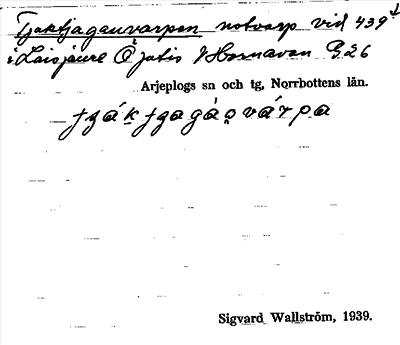 Tjaktjagauvarpen notvarp vid 439↓
i Laisjaure Ö Jutis V Hornavan G26
Arjeplogs sn och tg, Norrbottens län.
Sigvard Wallström, 1939.